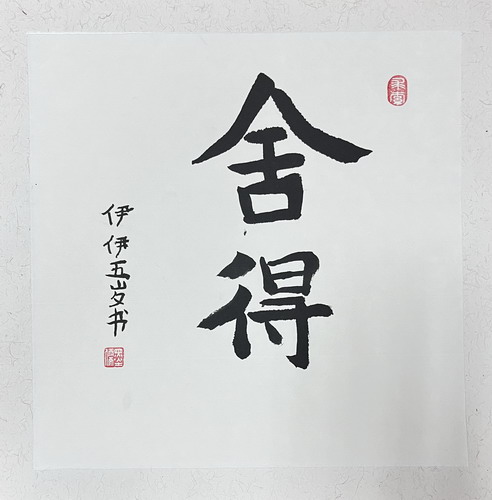 舍得
伊伊五岁书